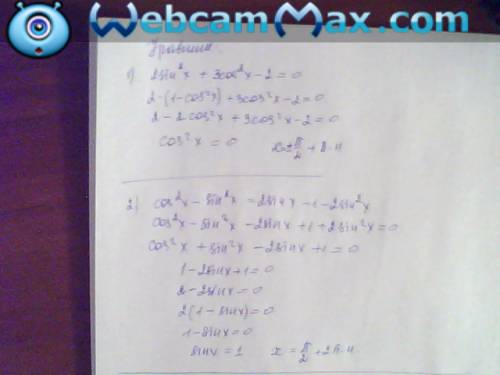 WebcamMax.com
Уравнения.
1) 2sin²x + 3cos²x - 2 = 0
2·(1-cos²x) + 3cos²x - 2 = 0
2 - 2cos²x + 3cos²x - 2 = 0
cos²x = 0
2) cos²x - sin²x = 2sinx - 1 - 2sin²x
cos²x - sin²x - 2sinx + 1 + 2sin²x = 0
cos²x + sin²x - 2sinx + 1 = 0
1 - 2sinx + 1 = 0
2 - 2sinx = 0
2(1 - sinx) = 0
1 - sinx = 0
sinx = 1 x = π/2 + 2πn